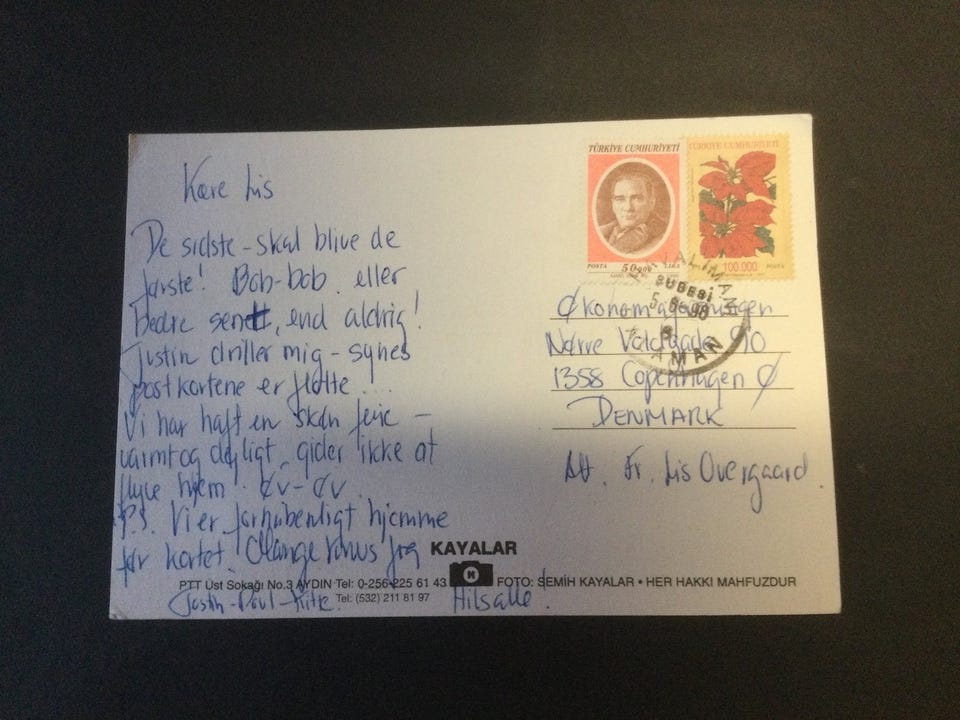 Kære Lis
De sidste - skal blive de
første! Bob-bob. eller
Bedre sent, end aldrig!
Justin driller mig - synes
postkortene er flotte...
Vi har haft en skøn ferie -
varmt og dejligt, gider ikke at
flyve hjem. Øv-Øv.
P.S. Vi er forhåbentligt hjemme
før kortet.
Justin-Poul-
Hils alle!
TÜRKİYE CUMHURİYETİ
50.000
POSTA LİRA
TÜRKİYE CUMHURİYETİ
100.000
POSTA
ŞUBESİ
Nørre Voldgade 90
1358 Copenhagen Ø
DENMARK
Att. Fr. Lis Overgaard.
KAYALAR
PTT Üst Sokağı No.3 AYDIN Tel: 0-256-225 61 43
Tel: (532) 211 81 97
FOTO: SEMİH KAYALAR • HER HAKKI MAHFUZDUR